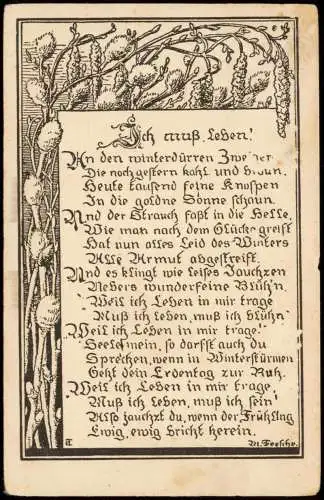 Ich muß leben!
An den winterdürren Zweigen
Die noch gestern kahl und braun,
Heute tausend feine Knospen
In die goldne Sonne schaun.
Und der Strauch faßt in die Helle,
Wie man nach dem Glücke greift
Hat nun alles Leid des Winters
Alle Armut abgestreift.
Und es klingt wie leises Jauchzen
Uebers wunderfeine Blüh'n:
Weil ich Leben in mir trage
Muß ich leben, muß ich blüh'n
Weil ich Leben in mir trage!
Seele mein, so darfst auch du
Sprechen, wenn in Winterstürmen
Geht dein Erdentag zur Ruh.
Weil ich Leben in mir trage,
Muß ich leben, muß ich sein!
Also jauchzt du, wenn der Frühling
Ewig, ewig bricht herein.
M. Feesche.